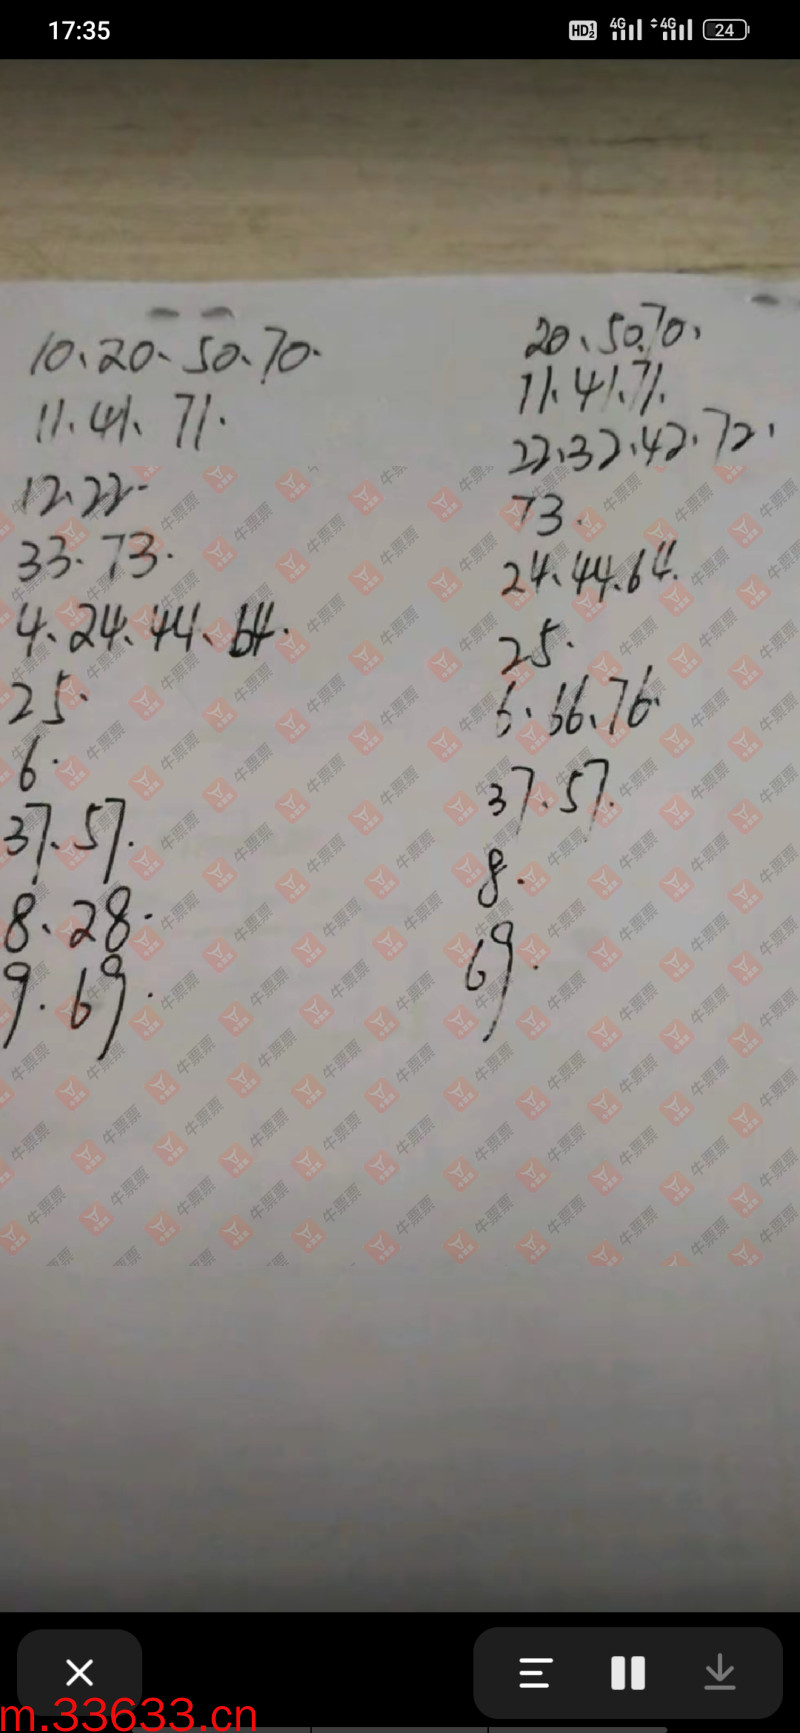 17:35
HD 4G 4G 24
10、20、50、70.
11、41、71.
12、22.
33.73.
4、24、44、64.
25.
6.
37、57.
8、28.
9.69.
20、50.70、
11.41.71.
22、32、42.72、
73.
24、44.64.
25.
6.66、76.
37.57.
8.
69.
牛票票
m.33633.cn